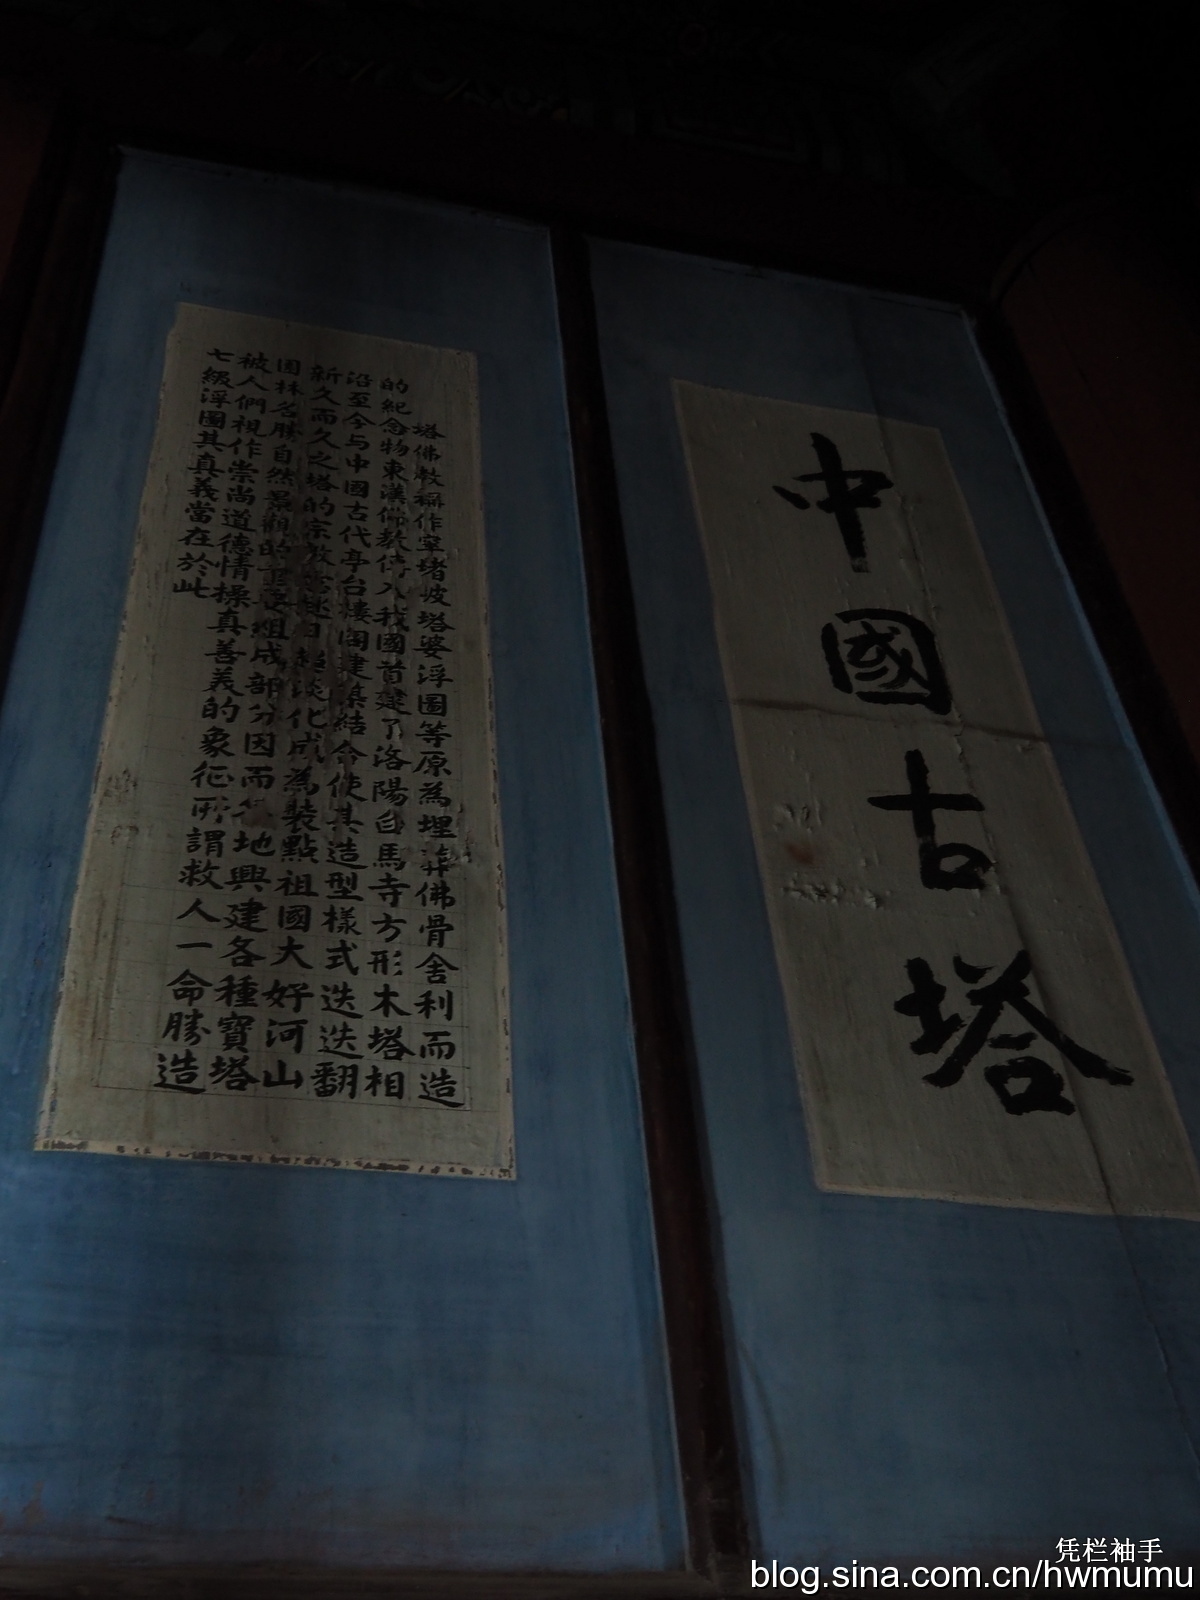 中國古塔
塔佛教稱作窣堵坡塔婆浮圖等原為埋葬佛骨舍利而造
的紀念物東漢佛教傳入我國首建了洛陽白馬寺方形木塔相
沿至今与中國古代亭台樓閣建築結合使其造型樣式迭迭翻
新久而久之塔的宗教日趨淡化成為裝點祖國大好河山
園林名勝自然景觀的組成部分因而各地興建各種寶塔
被人們視作崇尚道德情操真善義的象征所謂救人一命勝造
七級浮圖其真義當在於此
凭栏袖手
blog.sina.com.cn/hwmumu